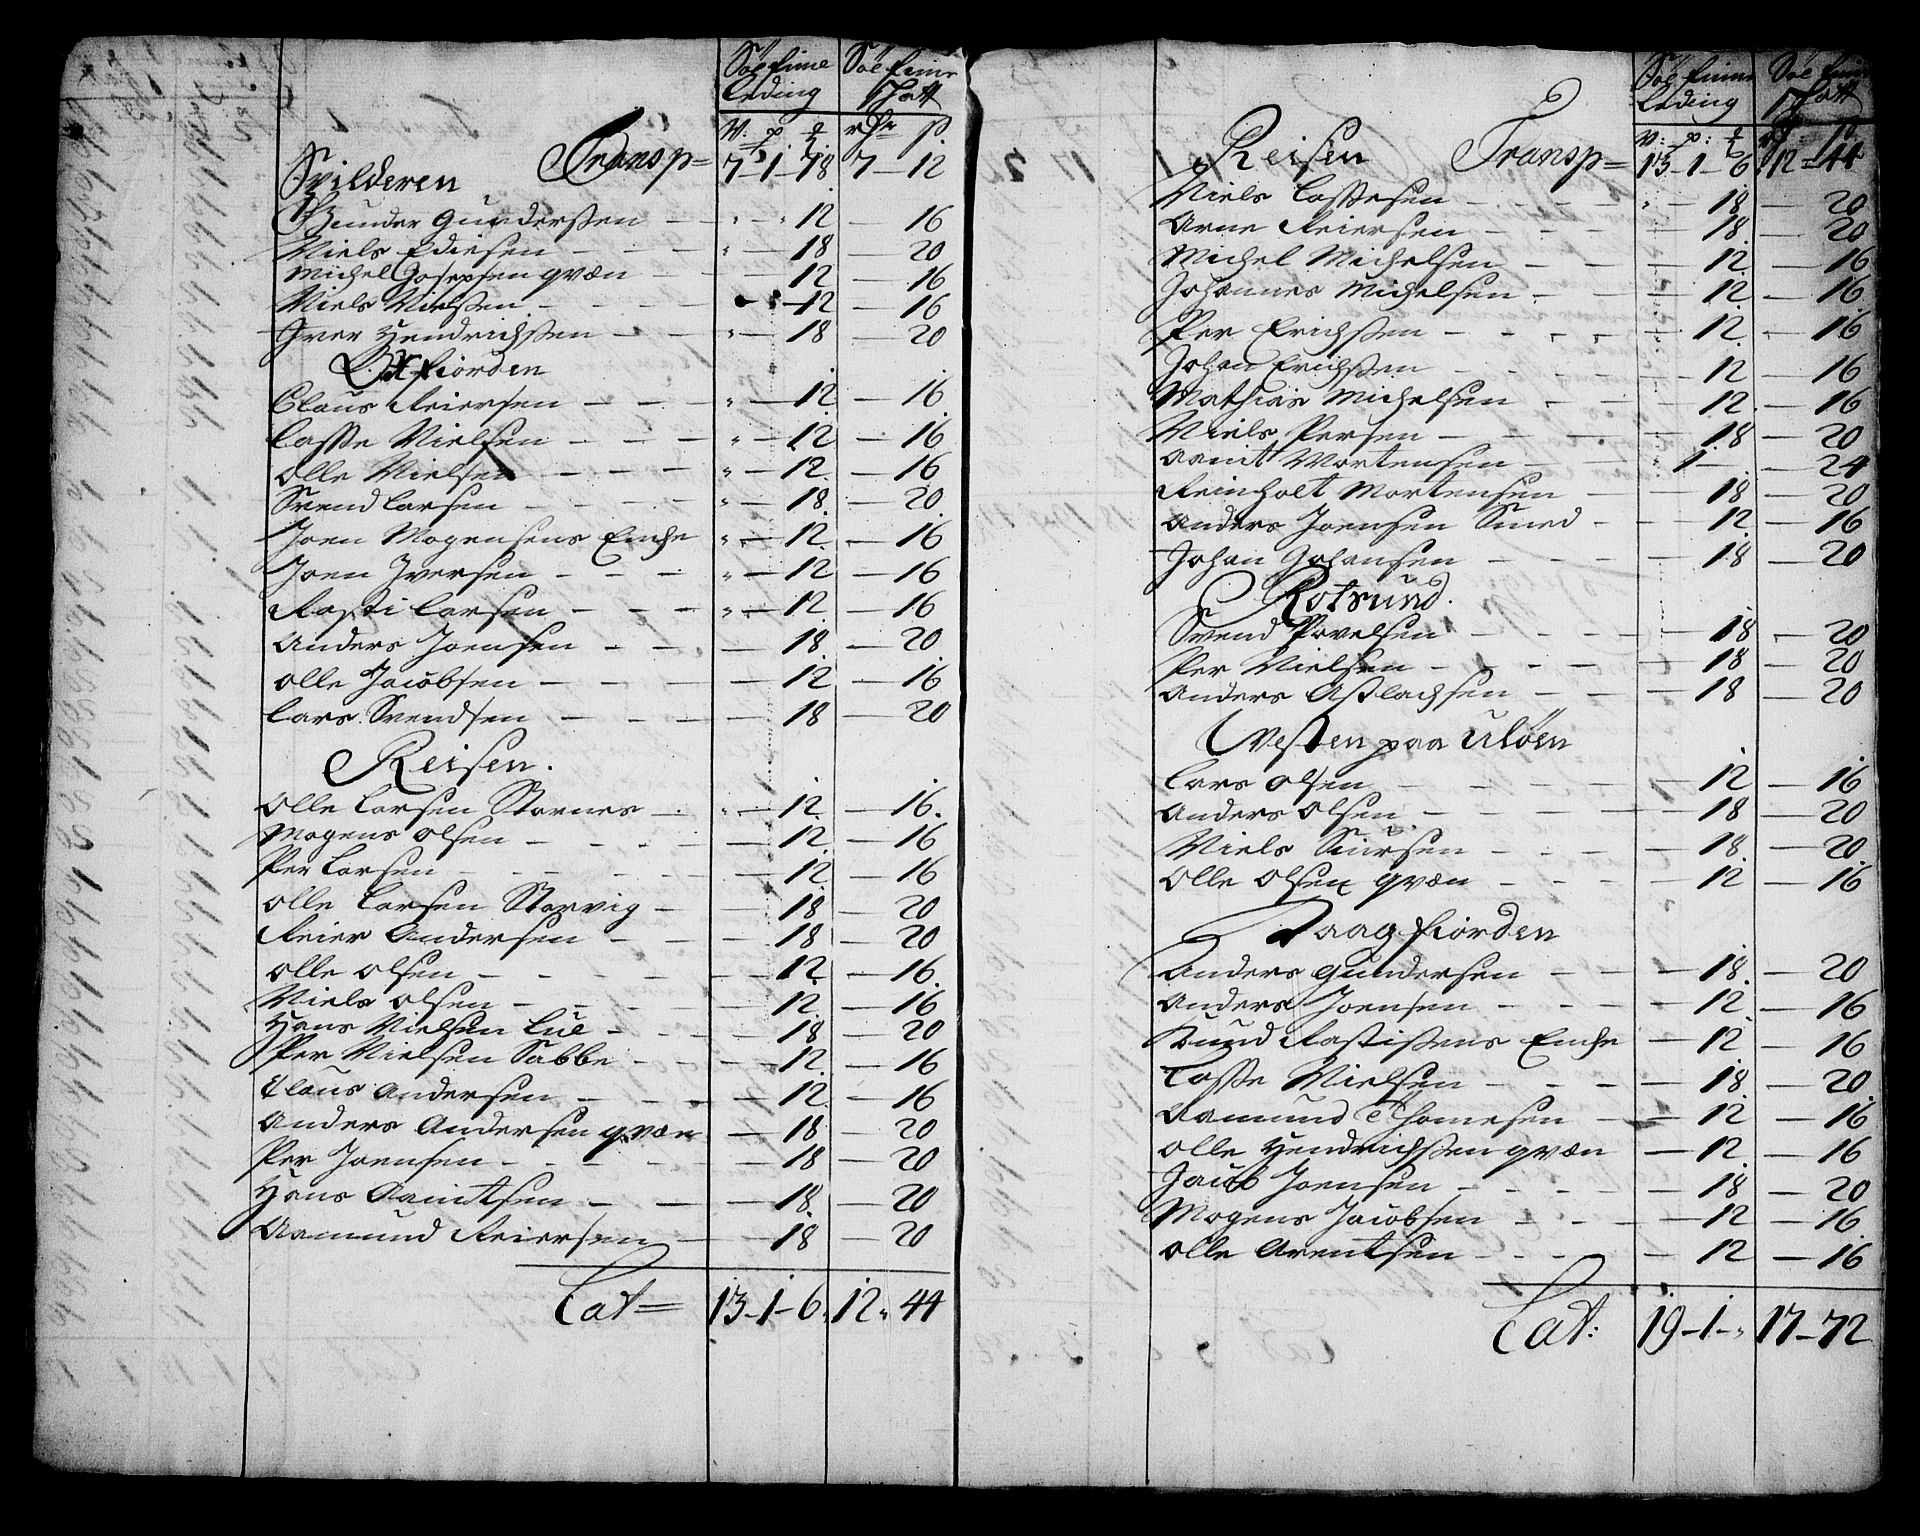 Söe finne Söe finne
Leding Skatt
V: p: # rdr ß
Transp= 7-1-18 7-12
Spilderen
Gunder Gunderssen - - " - " 12 - 16
Niels Ediesen - - " - 18 - 20
Michel Josepsen qvæn - 12 - 16
Niels Nielssen - - - - 12 - 16
Iver Hendrichssen - - " - 18 - 20
Oxfiorden
Claus Reiersen - - - " - 12 - 16
Lasse Nielsen - - - " - 12 - 16
Olle Nielsen - - - " - 12 - 16
Svend Larsen - - - " - 18 - 20
Joen Mogensens Enche " - 12 - 16
Joen Iversen - - - " - 12 - 16
Rasti Larsen - - - " - 12 - 16
Anders Joensen - - - 18 - 20
Olle Jacobsen - - - - 12 - 16
Lars Svendsen - - - - 18 - 20
Reisen.
Olle Larsen Stornes - " - 12 - 16
Mogens Olsen - - - - 12 - 16
Per Larsen - - - - - 12 - 16
Olle Larsen Storvig - - 18 - 20
Reier Andersen - - - 18 - 20
Olle Olsen - - - - - 12 - 16
Niels Olsen - - - - 12 - 16
Hans Nielsen Lue - - - 18 - 20
Per Nielsen Sabbe - - - 12 - 16
Claus Andersen - - - 12 - 16
Anders Andersen qvæn - 18 - 20
Per Joensen - - - - - 18 - 20
Hans Aamtsen - - - 18 - 20
Aamund Reiersen - - 18 - 20
Lat= 13-1-6 12 " 44
Söe finne Söe finne
Leding Skatt
V: p: # rdr ß
Reisen Transp= 13-1-6 12-44
Niels Lassesen - - - - " - 18 - 20
Arne Reiersen - - - - 18 - 20
Michel Michelsen - - - 12 - 16
Johannes Michelsen - - - 12 - 16
Per Erichssen - - - - 12 - 16
Johan Erichssen - - - - 12 - 16
Mathias Michelsen - - - 12 - 16
Niels Persen - - - - 18 - 20
Aamt Mortensen - - " 1 - - 24
Reinholt Mortensen - - 18 - 20
Anders Joensen Smed - - 12 - 16
Johan Johansen - - - 18 - 20
Rotsund.
Svend Povelsen - - - - 18 - 20
Per Nielsen - - - - - 18 - 20
Anders Aslachsen - - - 18 - 20
Westen paa Uløen
Lars Olsen - - - - - 12 - 16
Anders Olsen - - - - 18 - 20
Niels Siursen - - - - 18 - 20
Olle Olsen qvæn - - - - 12 - 16
Kaagfiorden
Anders Gundersen - - - 18 - 20
Anders Joensen - - - - 12 - 16
Knud Rastissens Enche - 12 - 16
Lasse Nielsen - - - - 18 - 20
Aamund Thomesen - - 12 - 16
Olle Hendrichssen qvæn - 12 - 16
Jacob Joensen - - - - 18 - 20
Mogens Jacobsen - - - - 12 - 16
Olle Arentsen - - - - 12 - 16
Lat: 19-1-" 17-72